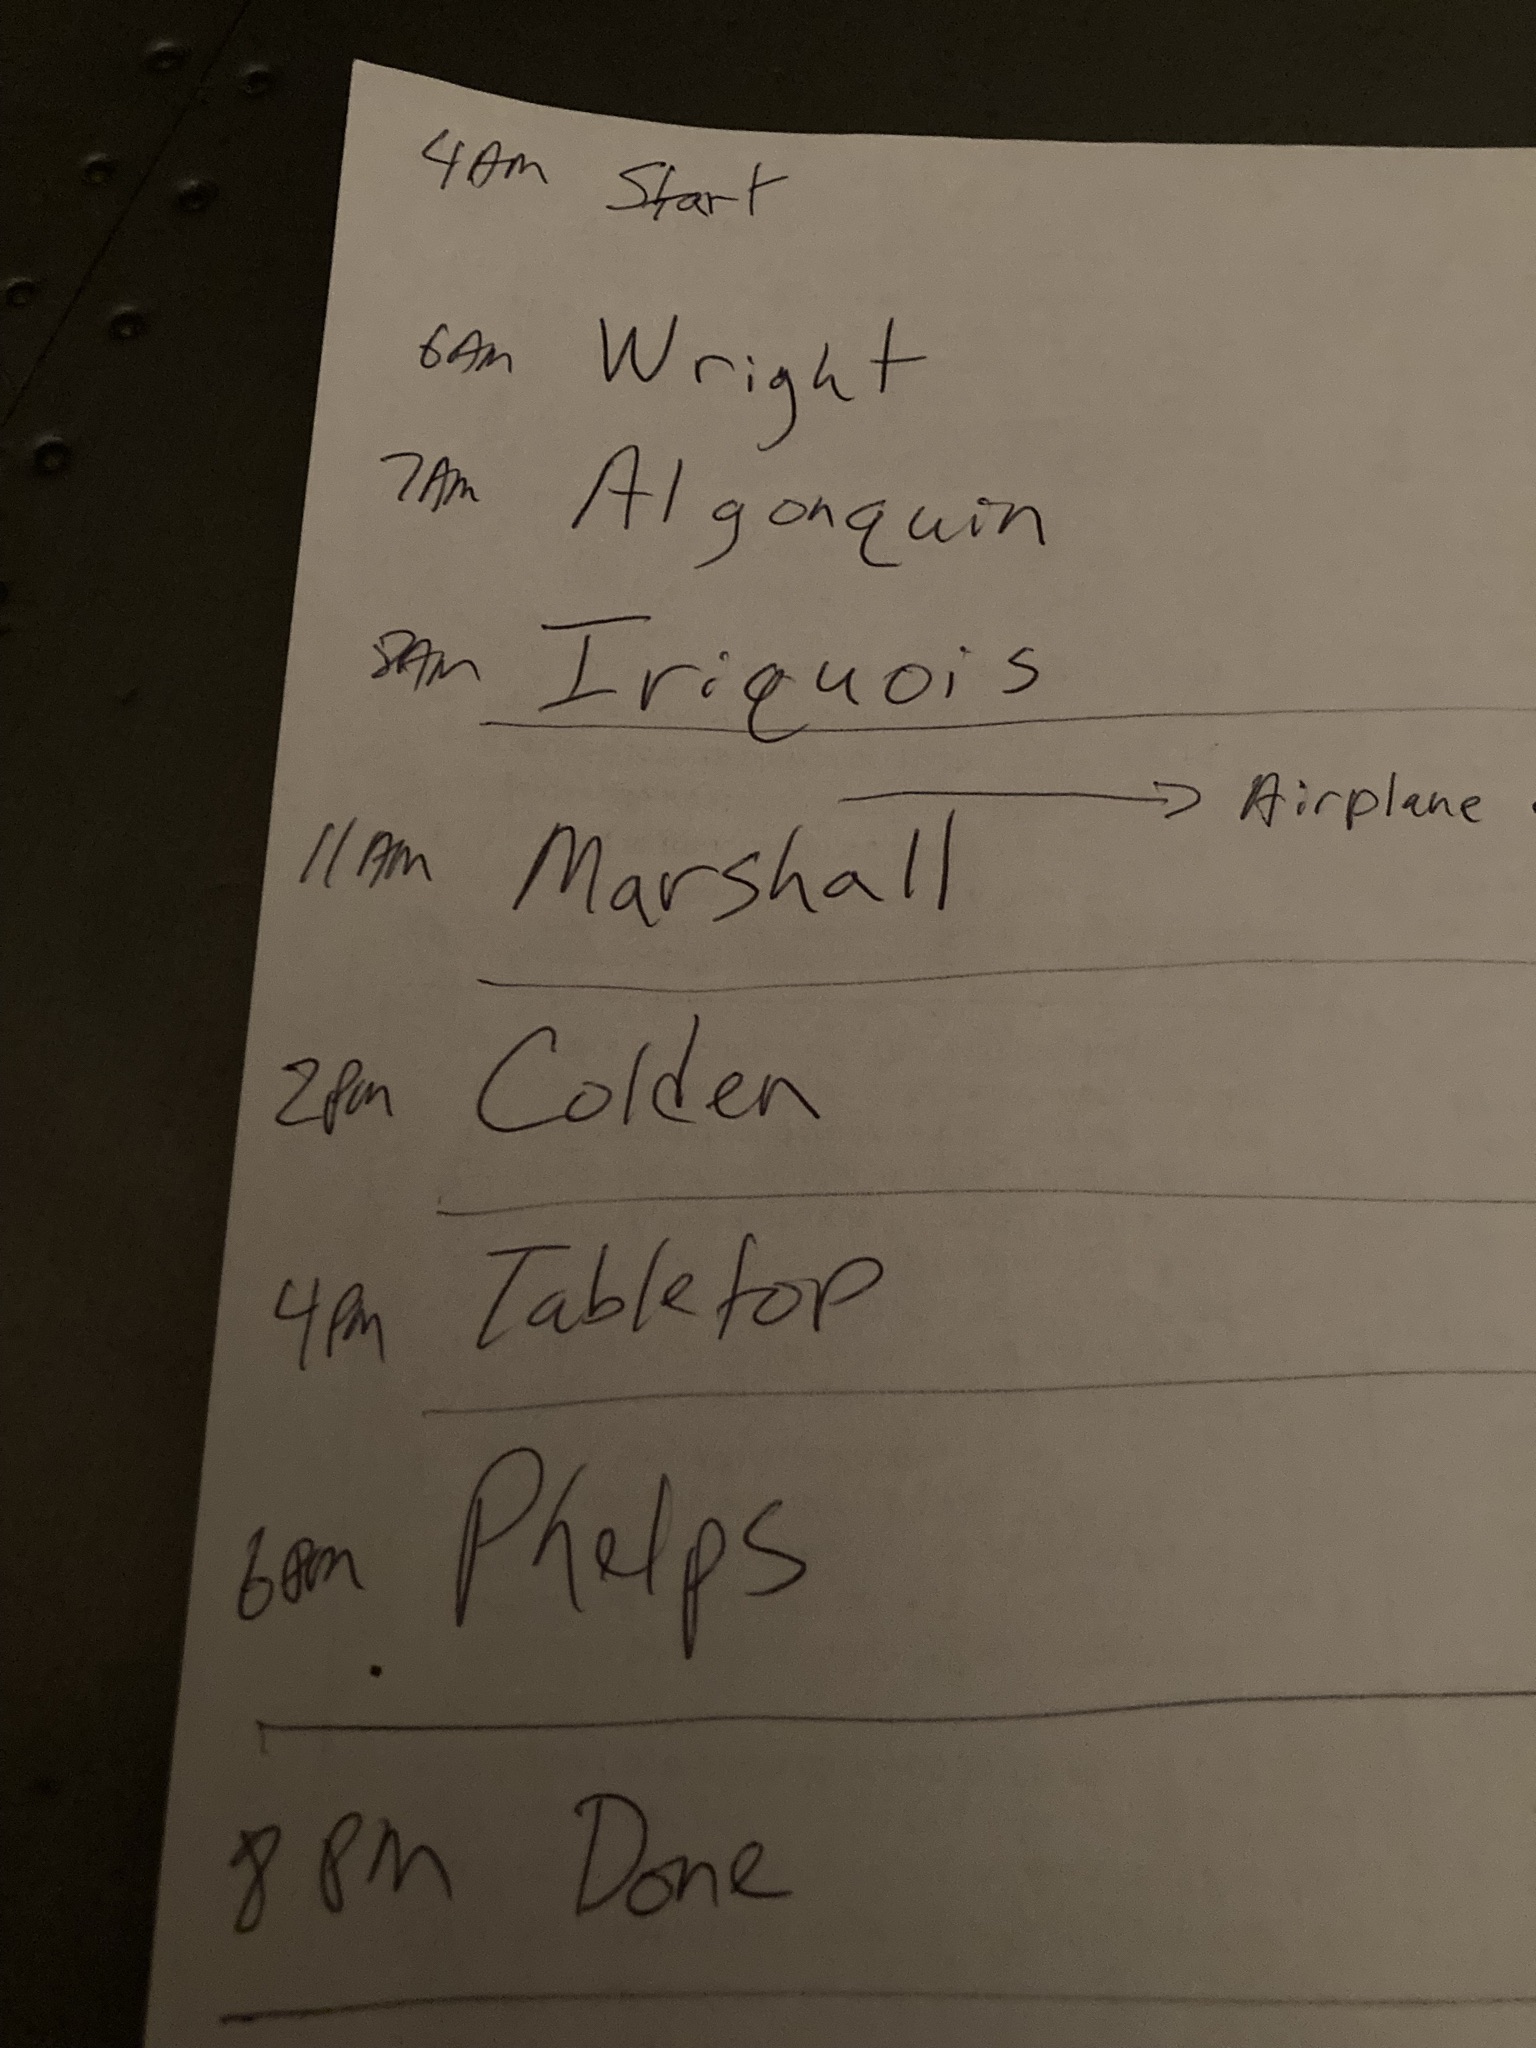 4AM Start
6AM Wright
7AM Algonquin
8AM Iriquois
→ Airplane
11AM Marshall
2PM Colden
4PM Tabletop
6PM Phelps
8 PM Done